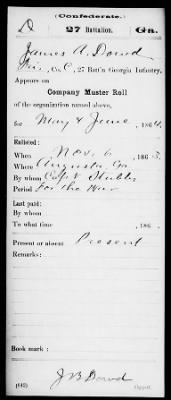 (Confederate.)
D 27 Battalion. Ga.
James A. Dowd
Pri, Co. C, 27 Batt'n Georgia Infantry.
Appears on
Company Muster Roll
of the organization named above,
for May & June, 1864.
Enlisted:
When Nov. 6, 1863.
Where Augusta Ga
By whom Capt Stubbs
Period For the War
Last paid:
By whom
To what time , 186 .
Present or absent Present
Remarks:
Book mark:
J B Dowd
(642) Copyist.